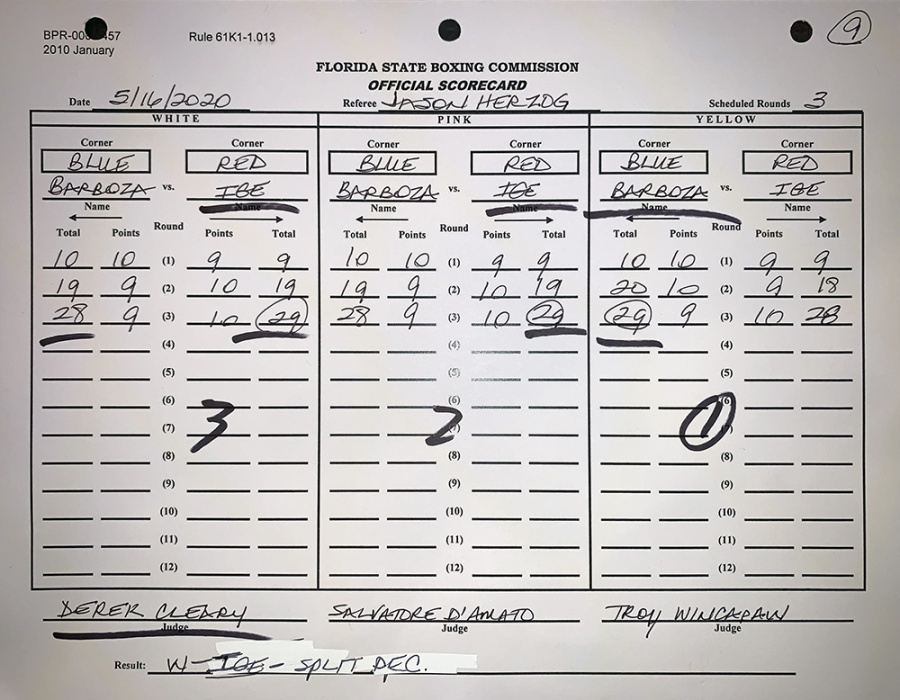 BPR-00 457 Rule 61K1-1.013 9
2010 January
FLORIDA STATE BOXING COMMISSION
OFFICIAL SCORECARD
Date 5/16/2020 Referee JASON HERZOG Scheduled Rounds 3
WHITE PINK YELLOW
Corner Corner Corner Corner Corner Corner
BLUE RED BLUE RED BLUE RED
BARBOZA vs. IGE BARBOZA vs. IGE BARBOZA vs. IGE
Name Name Name Name Name Name
Total Points Round Points Total Total Points Round Points Total Total Points Round Points Total
10 10 (1) 9 9 10 10 (1) 9 9 10 10 (1) 9 9
19 9 (2) 10 19 19 9 (2) 10 19 20 10 (2) 9 18
28 9 (3) 10 29 28 9 (3) 10 29 29 9 (3) 10 28
(4) (4) (4)
(5) (5) (5)
(6) (6) (6
3 (7) 2 (7) 1
(8) (8) (8)
(9) (9) (9)
(10) (10) (10)
(11) (11) (11)
(12) (12) (12)
DEREK CLEARY SALVATORE D'AMATO TROY WINCAPAW
Judge Judge Judge
Result: W-IGE- SPLIT DEC.